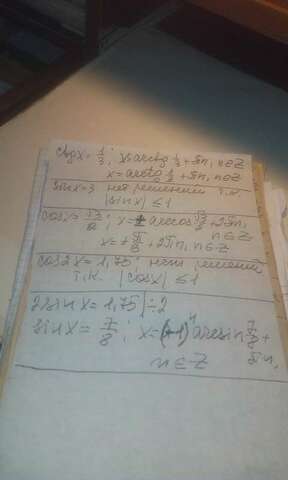 ctg x = 1/3; x = arcctg 1/3 + πn, n ∈ Z
x = arcctg 1/3 + πn, n ∈ Z
sin x = 3 нет решений т.к.
|sin x| ≤ 1
cos x = √3/2; x = ± arccos √3/2 + 2πn,
n ∈ Z
x = ± π/6 + 2πn, n ∈ Z
cos 2x = 1,75; нет решений
т.к. |cos x| ≤ 1
2 sin x = 1,75 | ÷2
sin x = 7/8; x = (-1)ⁿ arcsin 7/8 +
πn,
n ∈ Z